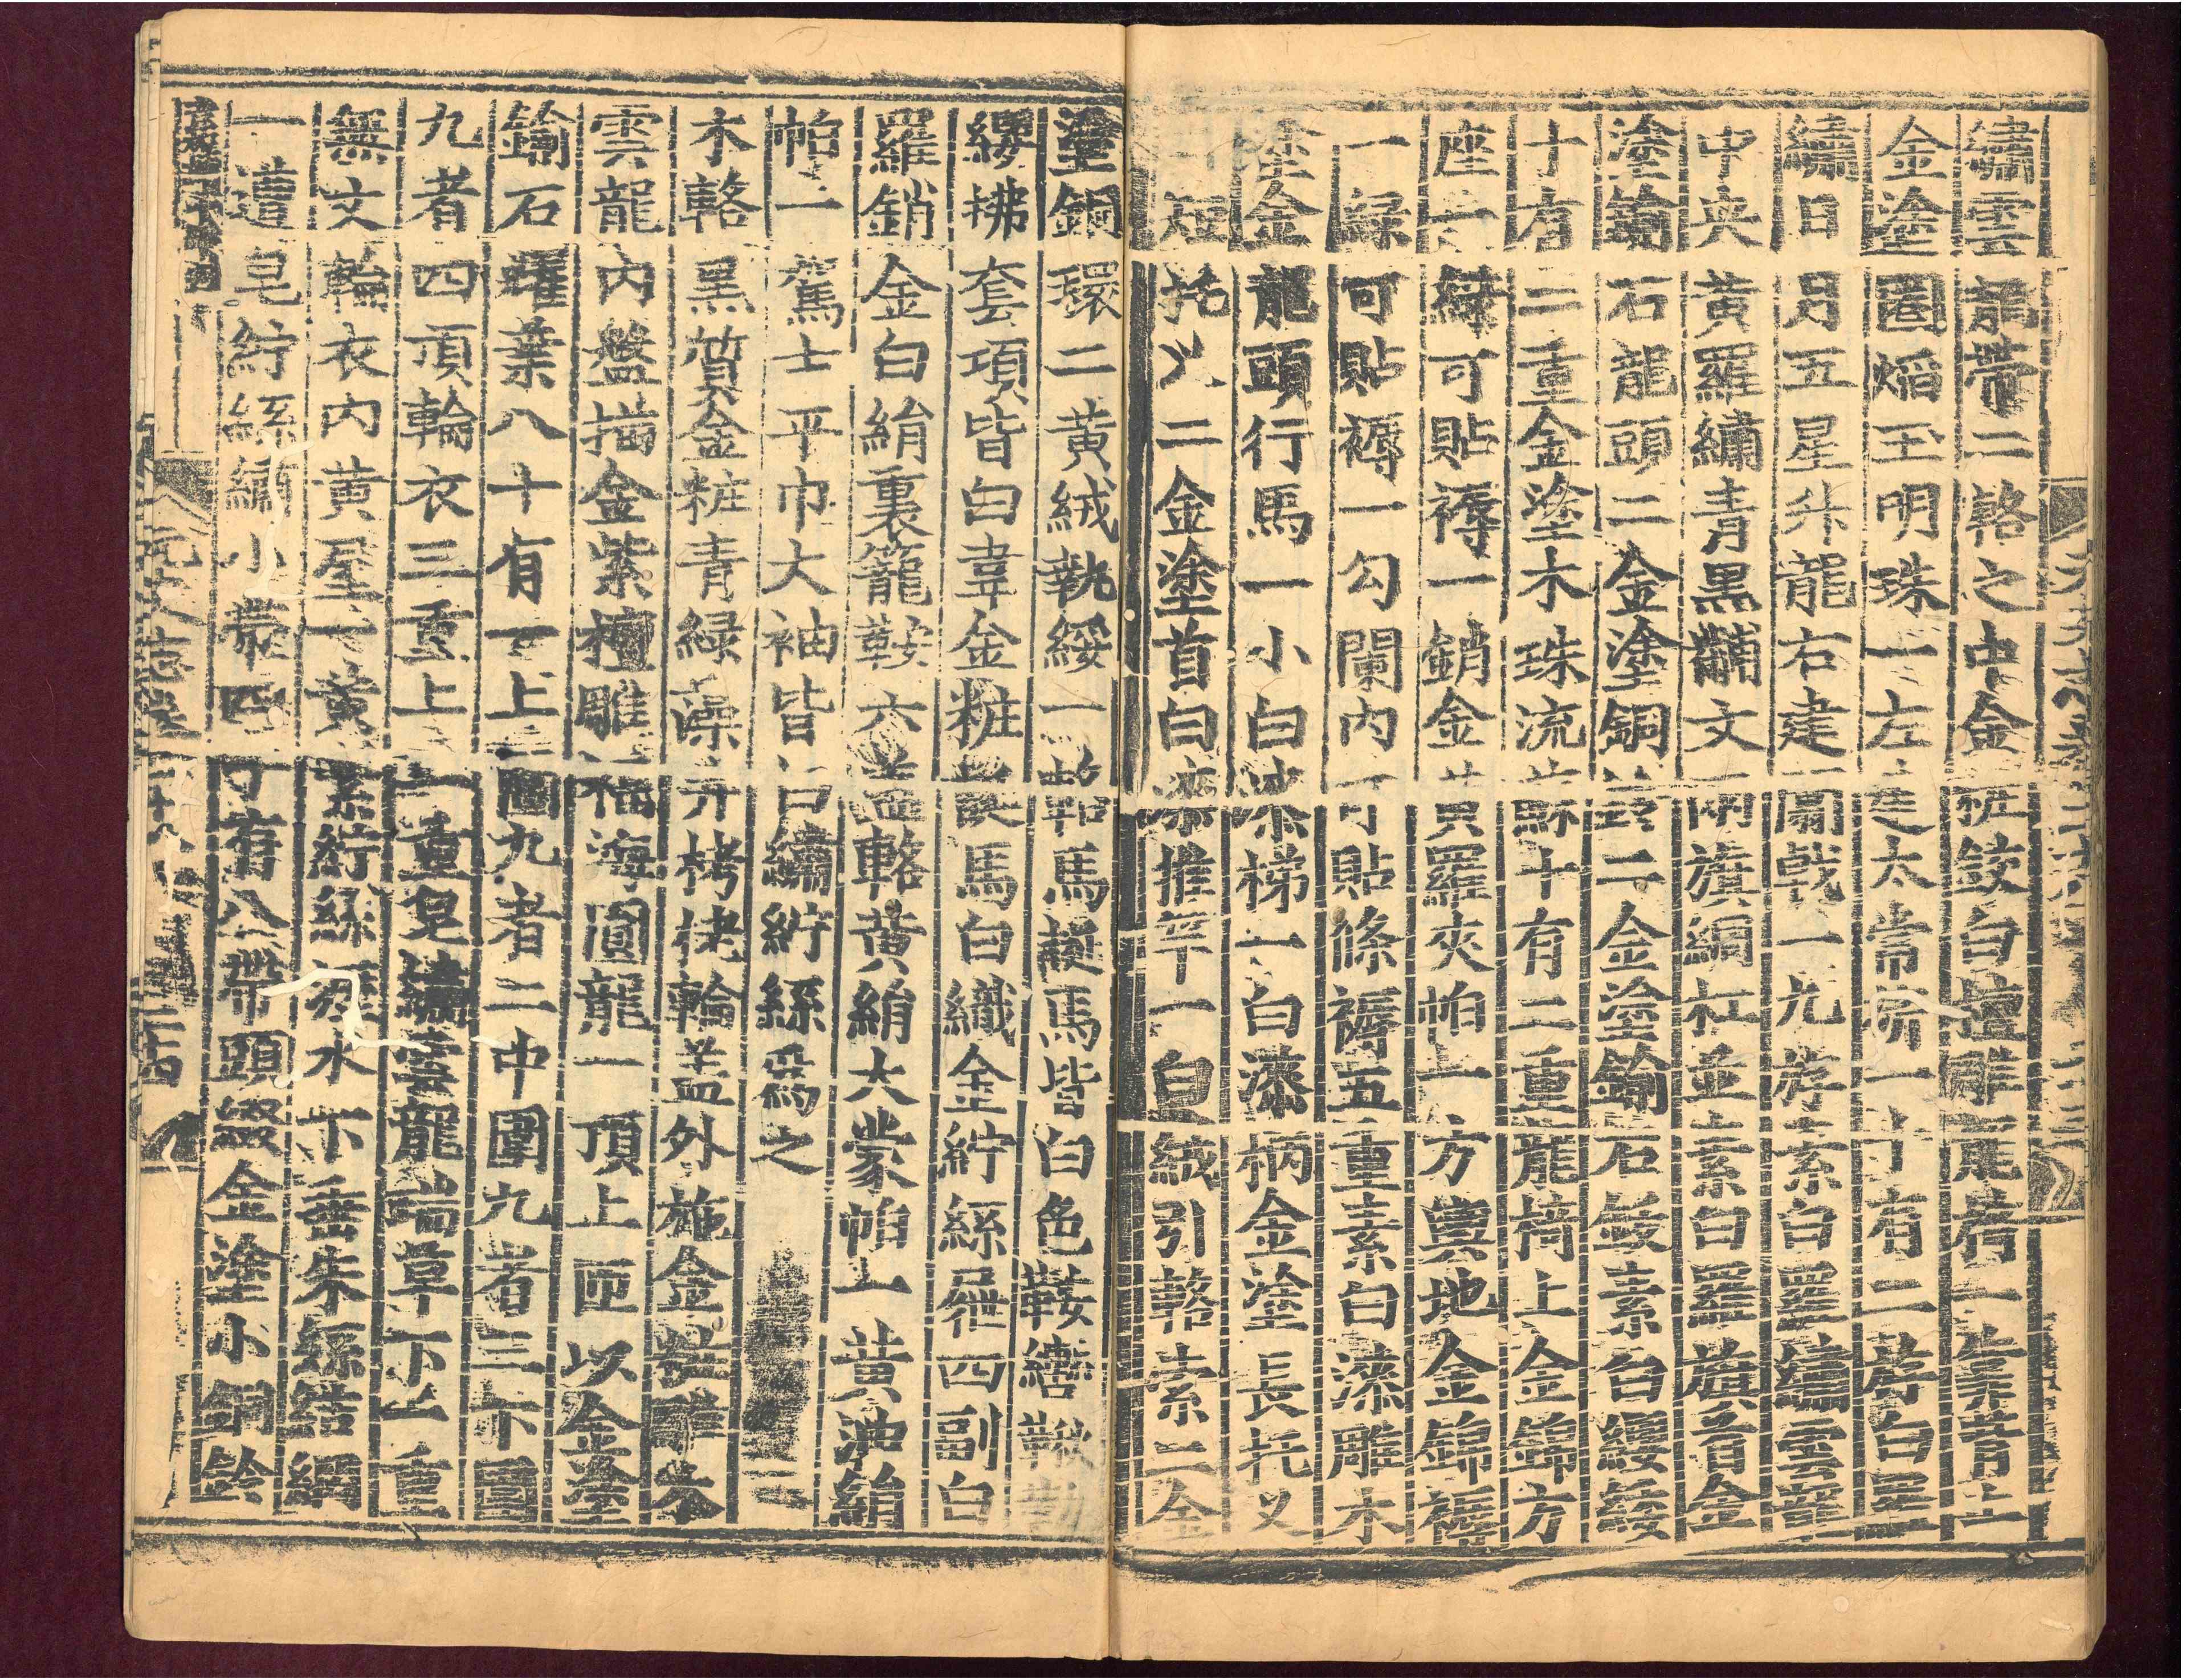 繡雲龍帶二輅之中金粧鉸白檀雕龍椅一靠背上
金塗圈熖玉明珠一左建太常旂一十有二斿白羅
繡日月五星升龍右建闟戟一九斿素白羅繡雲龍
中央黃羅繡青黑黼文兩旗綢杠並素白羅旗首金
塗鍮石龍頭二金塗銅鈴二金塗鍮石鈸素白纓綏
十有二重金塗木珠流蘇十有二重龍椅上金錦方
座一綠可貼褥一銷金黃羅夾帕一方輿地金錦褥
一綠可貼褥一勾闌內可貼條褥五重素白漆雕木
塗金龍頭行馬一小白漆梯一白漆柄金塗長托叉
二短托叉二金塗首白漆推竿一白絨引輅索二金
塗銅環二黃絨執綏一輅馬誕馬皆白色鞍轡鞦勒
纓拂套項皆白韋金粧誕馬白織金紵絲屜四副白
羅銷金白絹裏籠鞍六蓋輅黃絹大蒙帕一黃油絹
帕一駕士平巾大袖皆白繡紵絲爲之
木輅黑質金粧青綠藻井栲栳輪蓋外施金粧雕木
雲龍內盤描金紫檀雕福海圓龍一頂上匝以金塗
鍮石耀葉八十有一上圍九者二中圍九者三下圍
九者四頂輪衣三重上一重皂繡雲龍瑞草下二重
無文輪衣內黃屋一黃素紵絲瀝水下垂朱絲結網
一遭皂紵絲繡小帶四十有八帶頭綴金塗小銅鈴